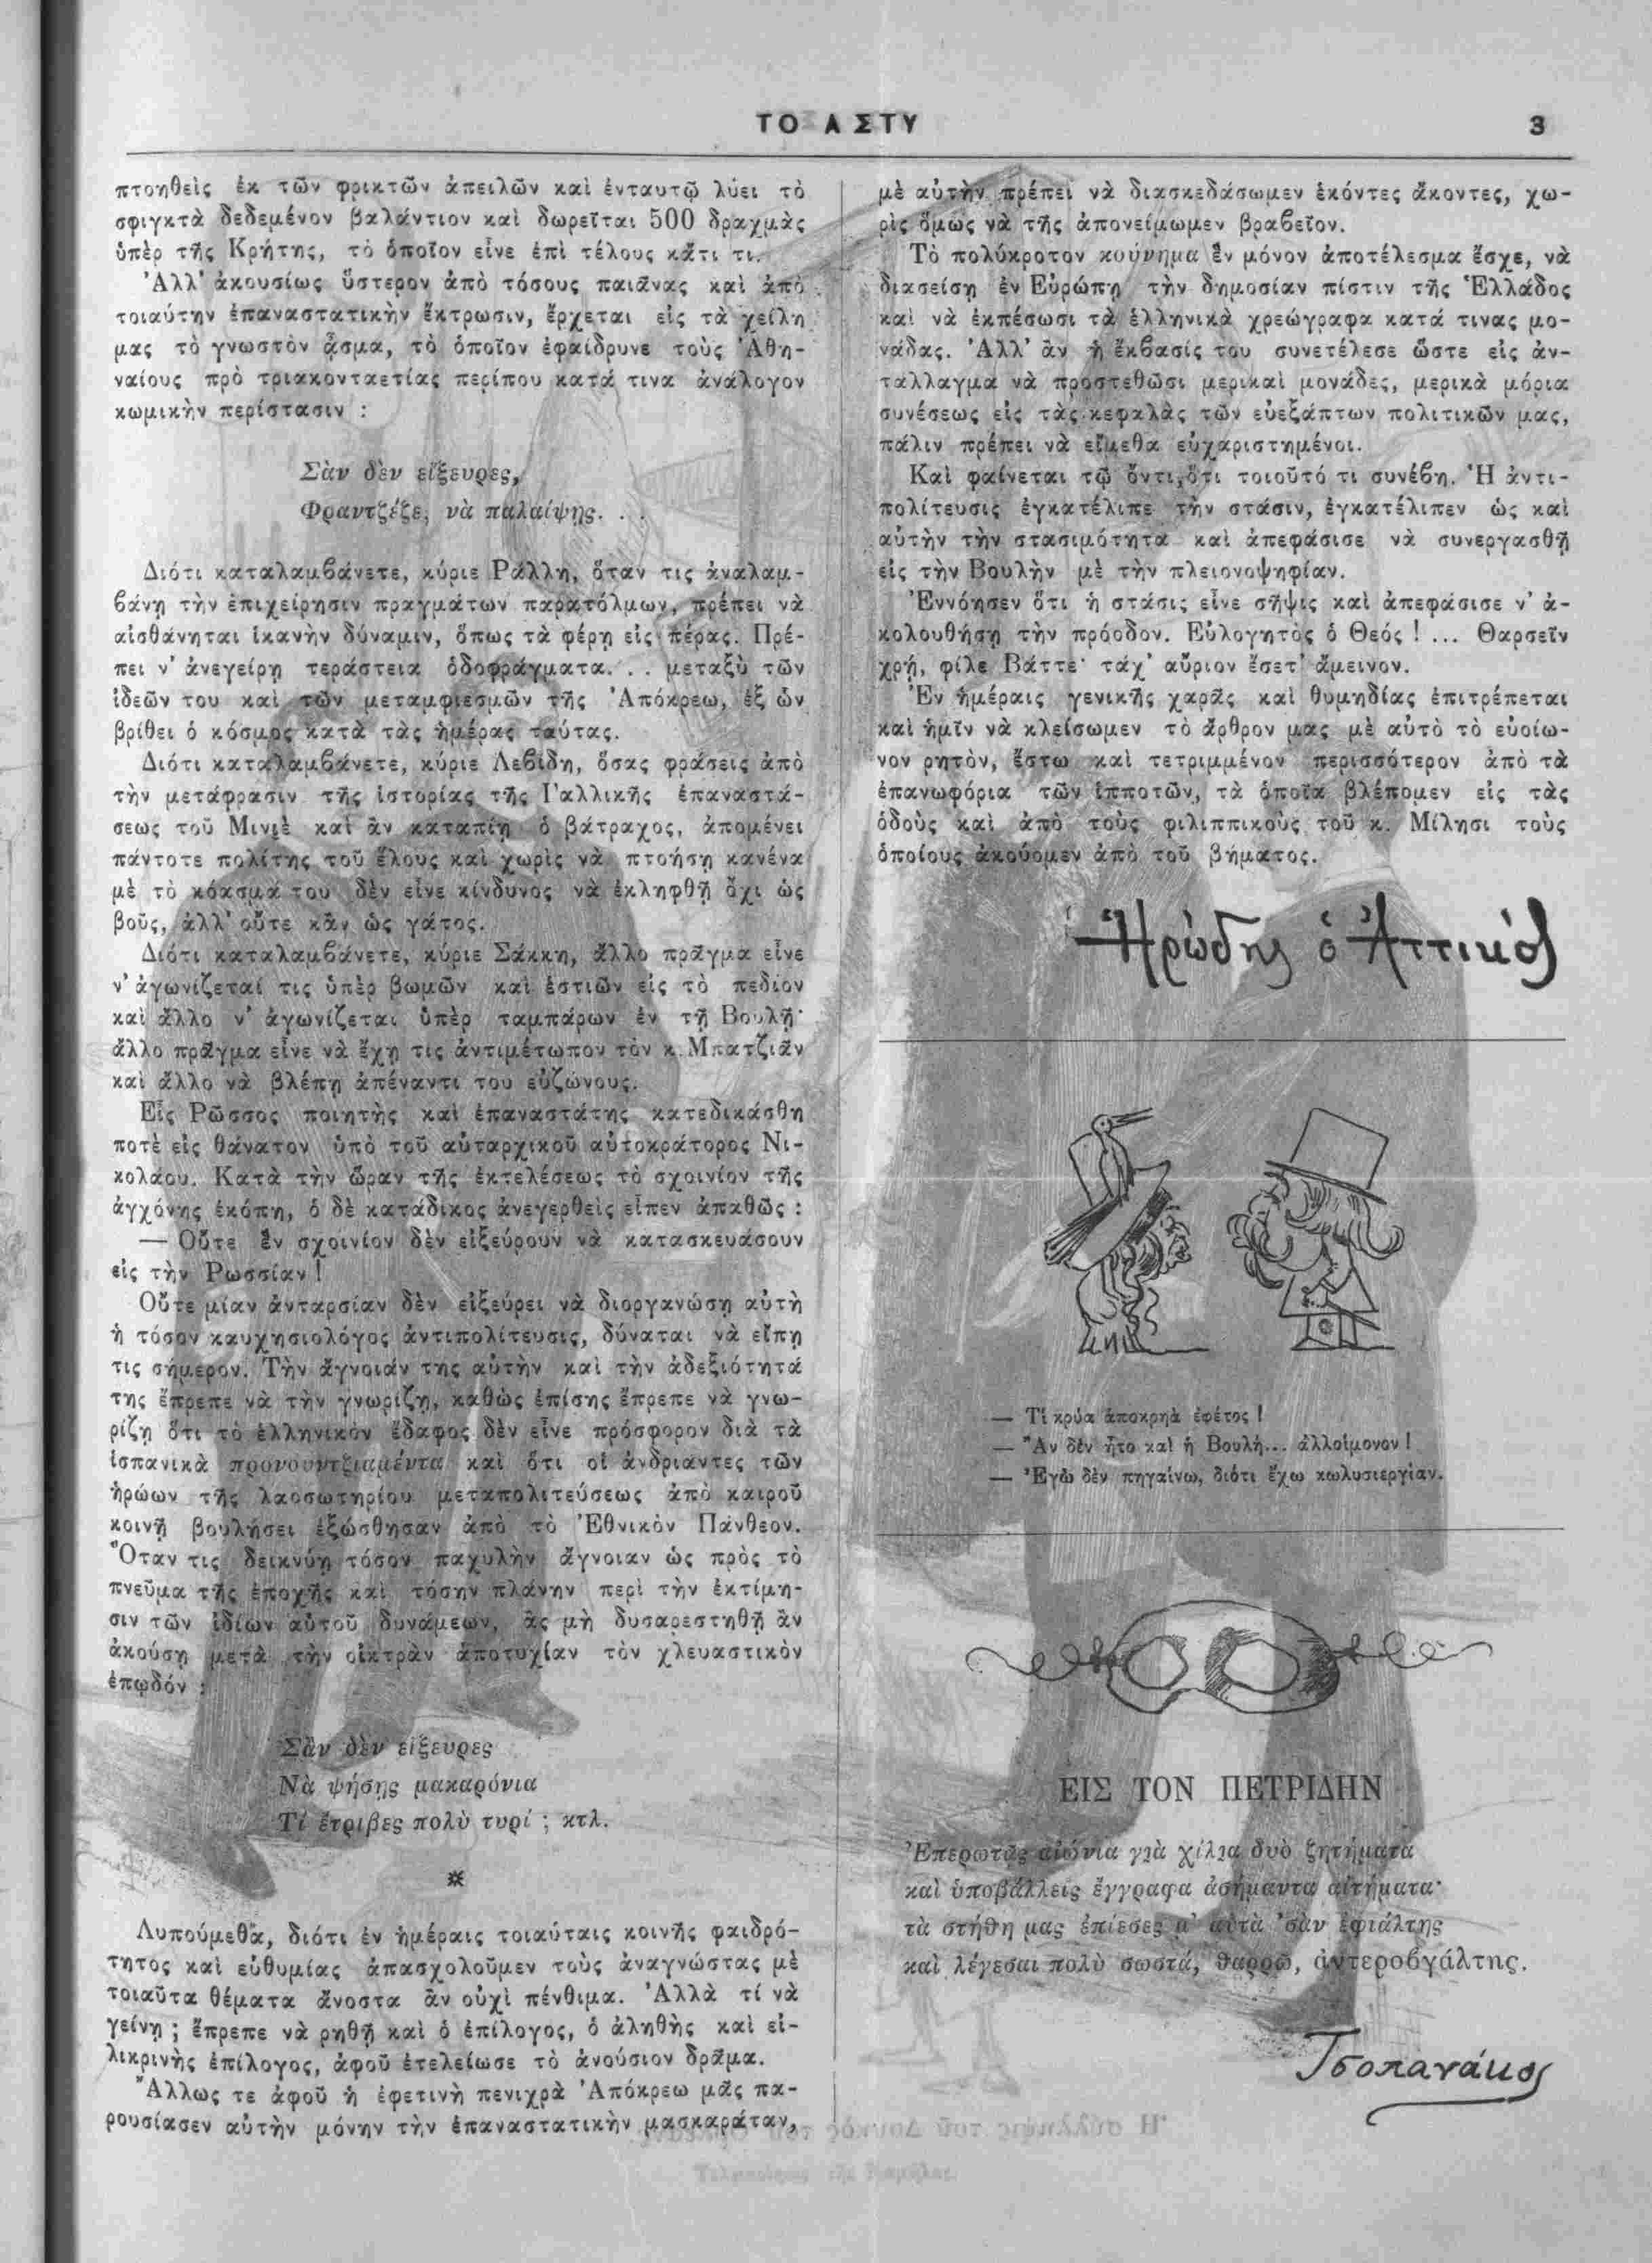 ΤΟ ΑΣΤΥ
3
πτοηθεὶς ἐκ τῶν φρικτῶν ἀπειλῶν καὶ ἐνταυτῷ λύει τὸ
σφιγκτὰ δεδεμένον βαλάντιον καὶ δωρεῖται 500 δραχμὰς
ὑπὲρ τῆς Κρήτης, τὸ ὁποῖον εἶνε ἐπὶ τέλους κἄτι τι.
Ἀλλ' ἀκουσίως ὕστερον ἀπὸ τόσους παιᾶνας καὶ ἀπὸ
τοιαύτην ἐπαναστατικὴν ἔκτρωσιν, ἔρχεται εἰς τὰ χείλη
μας τὸ γνωστὸν ᾆσμα, τὸ ὁποῖον ἐφαίδρυνε τοὺς Ἀθη-
ναίους πρὸ τριακονταετίας περίπου κατά τινα ἀνάλογον
κωμικὴν περίστασιν :
Σὰν δὲν εἴξευρες,
Φραντζέζε, νὰ παλαίψῃς. . .
Διότι καταλαμβάνετε, κύριε Ράλλη, ὅταν τις ἀναλαμ-
βάνῃ τὴν ἐπιχείρησιν πραγμάτων παρατόλμων, πρέπει νὰ
αἰσθάνηται ἱκανὴν δύναμιν, ὅπως τὰ φέρῃ εἰς πέρας. Πρέ-
πει ν' ἀνεγείρῃ τεράστεια ὁδοφράγματα. . . μεταξὺ τῶν
ἰδεῶν του καὶ τῶν μεταμφιεσμῶν τῆς Ἀπόκρεω, ἐξ ὧν
βρίθει ὁ κόσμος κατὰ τὰς ἡμέρας ταύτας.
Διότι καταλαμβάνετε, κύριε Λεβίδη, ὅσας φράσεις ἀπὸ
τὴν μετάφρασιν τῆς ἱστορίας τῆς Γαλλικῆς ἐπαναστά-
σεως τοῦ Μινιὲ καὶ ἂν καταπίῃ ὁ βάτραχος, ἀπομένει
πάντοτε πολίτης τοῦ ἕλους καὶ χωρὶς νὰ πτοήσῃ κανένα
μὲ τὸ κόασμά του δὲν εἶνε κίνδυνος νὰ ἐκληφθῇ ὄχι ὡς
βοῦς, ἀλλ' οὔτε κἂν ὡς γάτος.
Διότι καταλαμβάνετε, κύριε Σάκκη, ἄλλο πρᾶγμα εἶνε
ν' ἀγωνίζεταί τις ὑπὲρ βωμῶν καὶ ἑστιῶν εἰς τὸ πεδίον
καὶ ἄλλο ν' ἀγωνίζεται ὑπὲρ ταμπάρων ἐν τῇ Βουλῇ·
ἄλλο πρᾶγμα εἶνε νὰ ἔχῃ τις ἀντιμέτωπον τὸν κ. Μπατζιᾶν
καὶ ἄλλο νὰ βλέπῃ ἀπέναντι του εὐζώνους.
Εἷς Ρῶσσος ποιητὴς καὶ ἐπαναστάτης κατεδικάσθη
ποτὲ εἰς θάνατον ὑπὸ τοῦ αὐταρχικοῦ αὐτοκράτορος Νι-
κολάου. Κατὰ τὴν ὥραν τῆς ἐκτελέσεως τὸ σχοινίον τῆς
ἀγχόνης ἐκόπη, ὁ δὲ κατάδικος ἀνεγερθεὶς εἶπεν ἀπαθῶς :
— Οὔτε ἓν σχοινίον δὲν εἰξεύρουν νὰ κατασκευάσουν
εἰς τὴν Ρωσσίαν !
Οὔτε μίαν ἀνταρσίαν δὲν εἰξεύρει νὰ διοργανώσῃ αὐτὴ
ἡ τόσον καυχησιολόγος ἀντιπολίτευσις, δύναται νὰ εἴπῃ
τις σήμερον. Τὴν ἄγνοιάν της αὐτὴν καὶ τὴν ἀδεξιότητά
της ἔπρεπε νὰ τὴν γνωρίζῃ, καθὼς ἐπίσης ἔπρεπε νὰ γνω-
ρίζῃ ὅτι τὸ ἑλληνικὸν ἔδαφος δὲν εἶνε πρόσφορον διὰ τὰ
ἱσπανικὰ προνουντζιαμέντα καὶ ὅτι οἱ ἀνδριαντες τῶν
ἡρώων τῆς λαοσωτηρίου μεταπολιτεύσεως ἀπὸ καιροῦ
κοινῇ βουλήσει ἐξώσθησαν ἀπὸ τὸ Ἐθνικὸν Πάνθεον.
Ὅταν τις δεικνύῃ τόσον παχυλὴν ἄγνοιαν ὡς πρὸς τὸ
πνεῦμα τῆς ἐποχῆς καὶ τόσην πλάνην περὶ τὴν ἐκτίμη-
σιν τῶν ἰδίων αὑτοῦ δυνάμεων, ἂς μὴ δυσαρεστηθῇ ἂν
ἀκούσῃ μετὰ τὴν οἰκτρὰν ἀποτυχίαν τὸν χλευαστικὸν
ἐπῳδόν :
Σὰν δὲν εἴξευρες
Νὰ ψήσῃς μακαρόνια
Τί ἔτριβες πολὺ τυρί ; κτλ.
⁂
Λυπούμεθα, διότι ἐν ἡμέραις τοιαύταις κοινῆς φαιδρό-
τητος καὶ εὐθυμίας ἀπασχολοῦμεν τοὺς ἀναγνώστας μὲ
τοιαῦτα θέματα ἄνοστα ἂν οὐχὶ πένθιμα. Ἀλλὰ τί νὰ
γείνῃ ; ἔπρεπε νὰ ρηθῇ καὶ ὁ ἐπίλογος, ὁ ἀληθὴς καὶ εἰ-
λικρινὴς ἐπίλογος, ἀφοῦ ἐτελείωσε τὸ ἀνούσιον δρᾶμα.
Ἄλλως τε ἀφοῦ ἡ ἐφετινὴ πενιχρὰ Ἀπόκρεω μᾶς πα-
ρουσίασεν αὐτὴν μόνην τὴν ἐπαναστατικὴν μασκαράταν,
μὲ αὐτὴν πρέπει νὰ διασκεδάσωμεν ἑκόντες ἄκοντες, χω-
ρὶς ὅμως νὰ τῆς ἀπονείμωμεν βραβεῖον.
Τὸ πολύκροτον κούνημα ἓν μόνον ἀποτέλεσμα ἔσχε, νὰ
διασείσῃ ἐν Εὐρώπῃ τὴν δημοσίαν πίστιν τῆς Ἑλλάδος
καὶ νὰ ἐκπέσωσι τὰ ἑλληνικὰ χρεώγραφα κατά τινας μο-
νάδας. Ἀλλ' ἂν ἡ ἔκβασίς του συνετέλεσε ὥστε εἰς ἀν-
τάλλαγμα νὰ προστεθῶσι μερικαὶ μονάδες, μερικὰ μόρια
συνέσεως εἰς τὰς κεφαλὰς τῶν εὐεξάπτων πολιτικῶν μας,
πάλιν πρέπει νὰ εἴμεθα εὐχαριστημένοι.
Καὶ φαίνεται τῷ ὄντι, ὅτι τοιοῦτό τι συνέβη. Ἡ ἀντι-
πολίτευσις ἐγκατέλιπε τὴν στάσιν, ἐγκατέλιπεν ὡς καὶ
αὐτὴν τὴν στασιμότητα καὶ ἀπεφάσισε νὰ συνεργασθῇ
εἰς τὴν Βουλὴν μὲ τὴν πλειονοψηφίαν.
Ἐννόησεν ὅτι ἡ στάσις εἶνε σῆψις καὶ ἀπεφάσισε ν' ἀ-
κολουθήσῃ τὴν πρόοδον. Εὐλογητὸς ὁ Θεός ! ... Θαρσεῖν
χρή, φίλε Βάττε· τάχ' αὔριον ἔσετ' ἄμεινον.
Ἐν ἡμέραις γενικῆς χαρᾶς καὶ θυμηδίας ἐπιτρέπεται
καὶ ἡμῖν νὰ κλείσωμεν τὸ ἄρθρον μας μὲ αὐτὸ τὸ εὐοίω-
νον ρητὸν, ἔστω καὶ τετριμμένον περισσότερον ἀπὸ τὰ
ἐπανωφόρια τῶν ἱπποτῶν, τὰ ὁποῖα βλέπομεν εἰς τὰς
ὁδοὺς καὶ ἀπὸ τοὺς φιλιππικοὺς τοῦ κ. Μίλησι τοὺς
ὁποίους ἀκούομεν ἀπὸ τοῦ βήματος.
Ἡρώδης ὁ Ἀττικός
— Τί κρύα ἀποκρηὰ ἐφέτος !
— Ἂν δὲν ἦτο καὶ ἡ Βουλή... ἀλλοίμονον !
— Ἐγὼ δὲν πηγαίνω, διότι ἔχω κωλυσιεργίαν.
ΕΙΣ ΤΟΝ ΠΕΤΡΙΔΗΝ
Ἐπερωτᾷς αἰώνια γιὰ χίλια δυὸ ζητήματα
καὶ ὑποβάλλεις ἔγγραφα ἀσήμαντα αἰτήματα·
τὰ στήθη μας ἐπίεσες μ' αὐτὰ 'σὰν ἐφιάλτης
καὶ λέγεσαι πολὺ σωστά, θαρρῶ, ἀντεροβγάλτης.
Τσοπανάκος